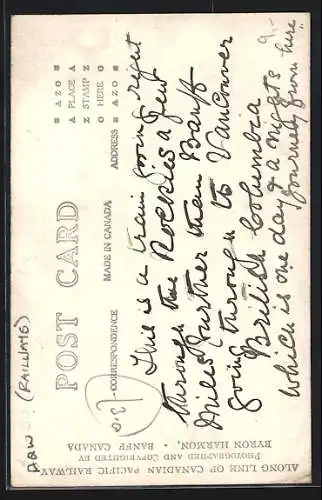 POST CARD
CORRESPONDENCE
MADE IN CANADA
ADDRESS
AZO
PLACE
STAMP
HERE
AZO
This is a train going right
through the Rockies a few
miles further than Banff
going through to Vancouver
British Columbia
which is one day & a night's
journey from here.
ALONG LINE OF CANADIAN PACIFIC RAILWAY
PHOTOGRAPHED AND COPYRIGHTED BY
BYRON HARMON, - BANFF CANADA
(RAILWAYS)